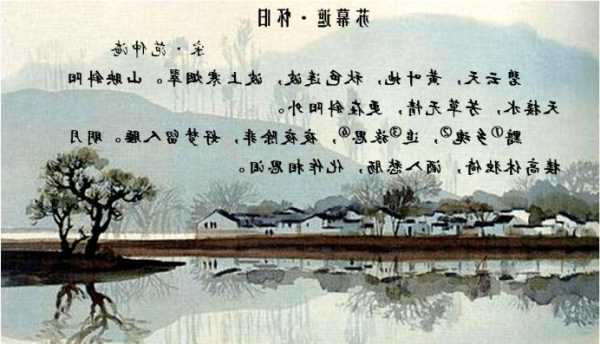 苏幕遮·怀旧
宋·范仲淹
碧云天，黄叶地，秋色连波，波上寒烟翠。山映斜阳
天接水，芳草无情，更在斜阳外。
黯①乡魂②，追③旅思④，夜夜除非，好梦留人睡。明月
楼高休独倚，酒入愁肠，化作相思泪。